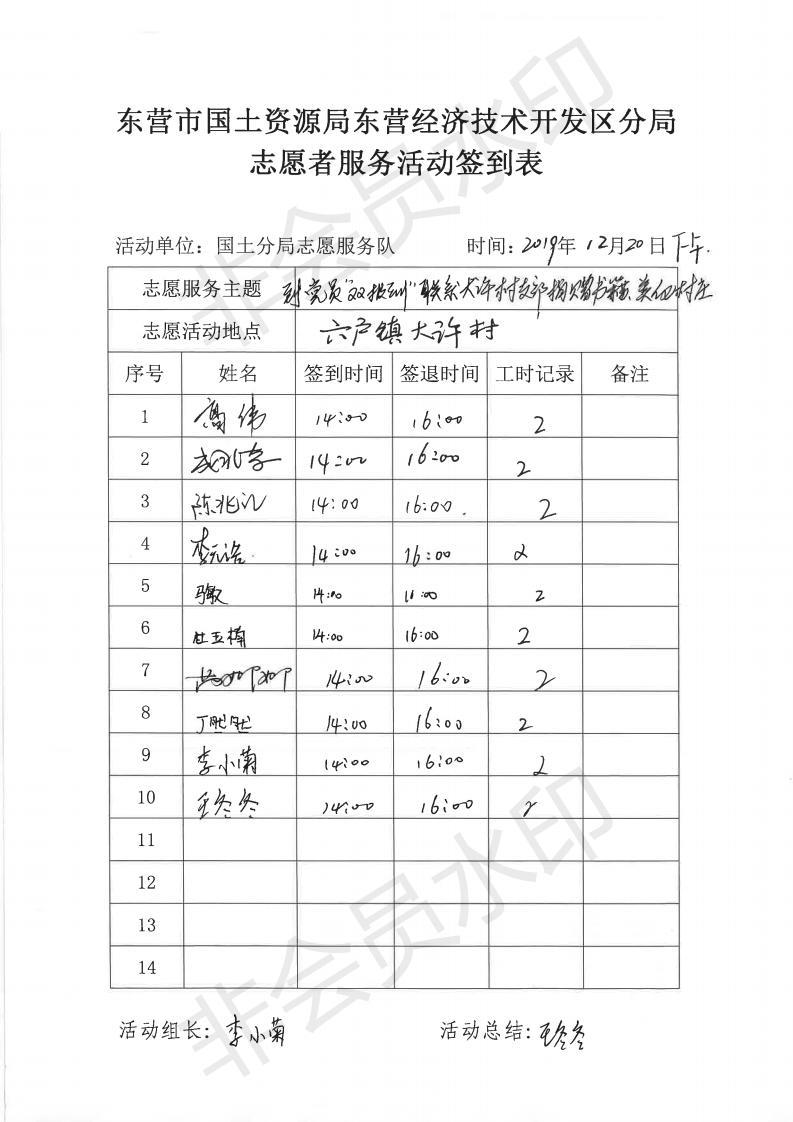 东营市国土资源局东营经济技术开发区分局
志愿者服务活动签到表
活动单位：国土分局志愿服务队 时间：2019年12月20日下午.
志愿服务主题 到党员"双报到"联系大许村支部捐赠书籍、美化村庄
志愿活动地点 六户镇大许村
序号 姓名 签到时间 签退时间 工时记录 备注
1 高伟 14:00 16:00 2
2 14:00 16:00 2
3 陈兆 14:00 16:00. 2
4 李元浩 14:00 16:00 2
5 马敏 14:00 16:00 2
6 杜玉楠 14:00 16:00 2
7 14:00 16:00 2
8 丁 14:00 16:00 2
9 李小菊 14:00 16:00 2
10 王冬冬 14:00 16:00 2
11
12
13
14
活动组长：李小菊 活动总结：王冬冬
非会员水印
非会员水印